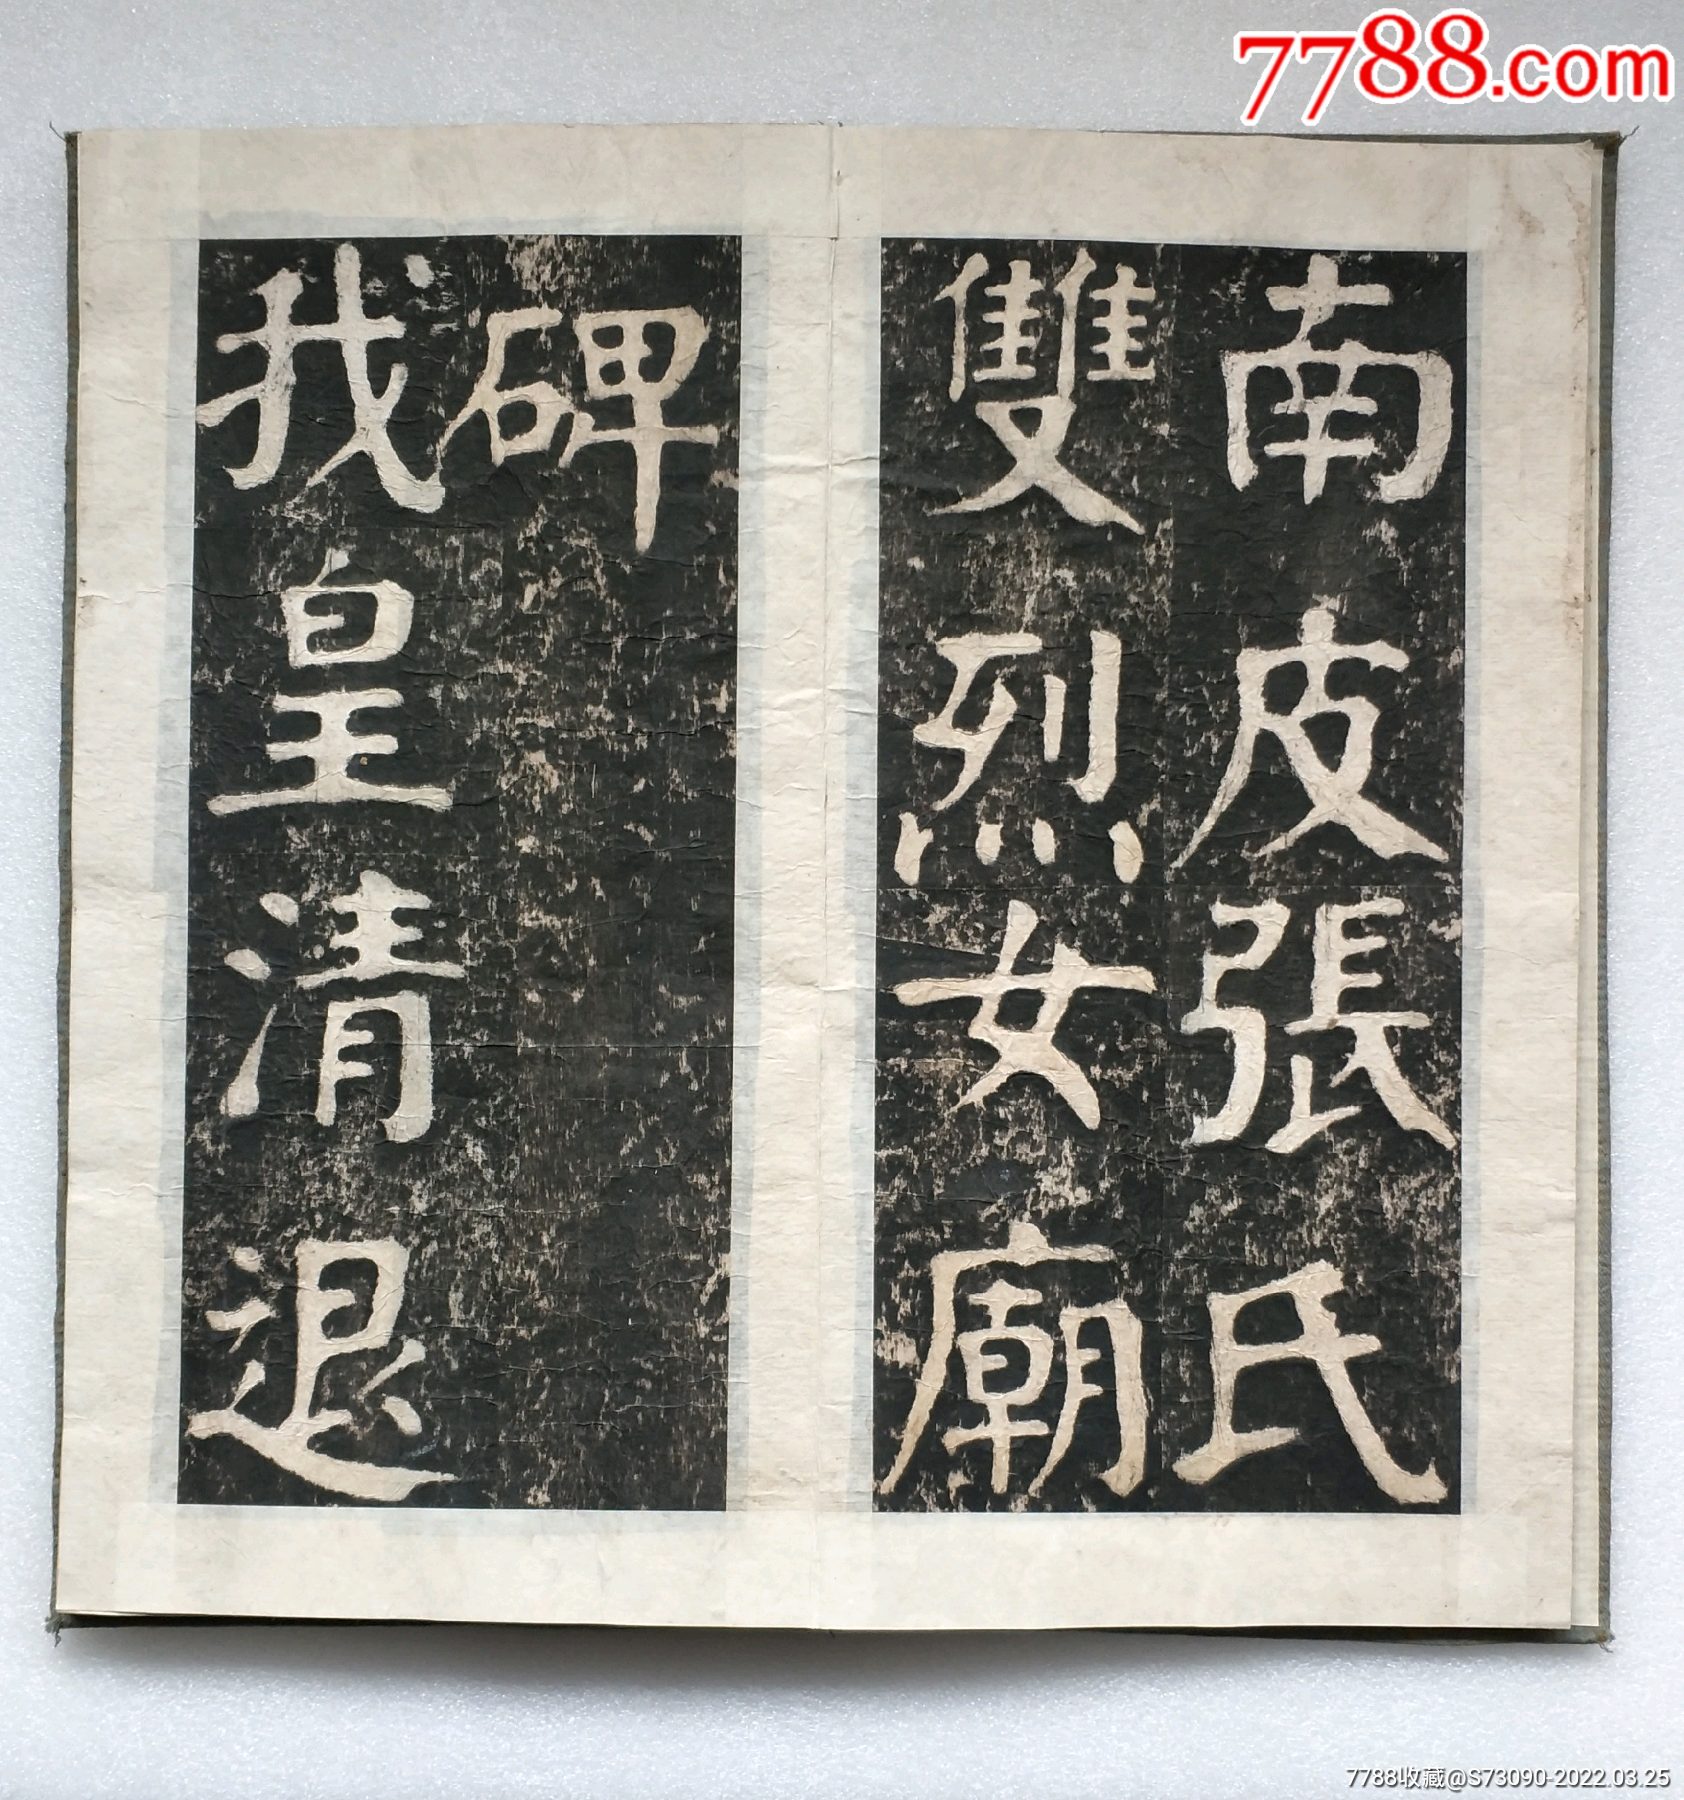 7788.com
南皮張氏
雙烈女廟
碑
我皇清退
7788收藏@S73090-2022.03.25